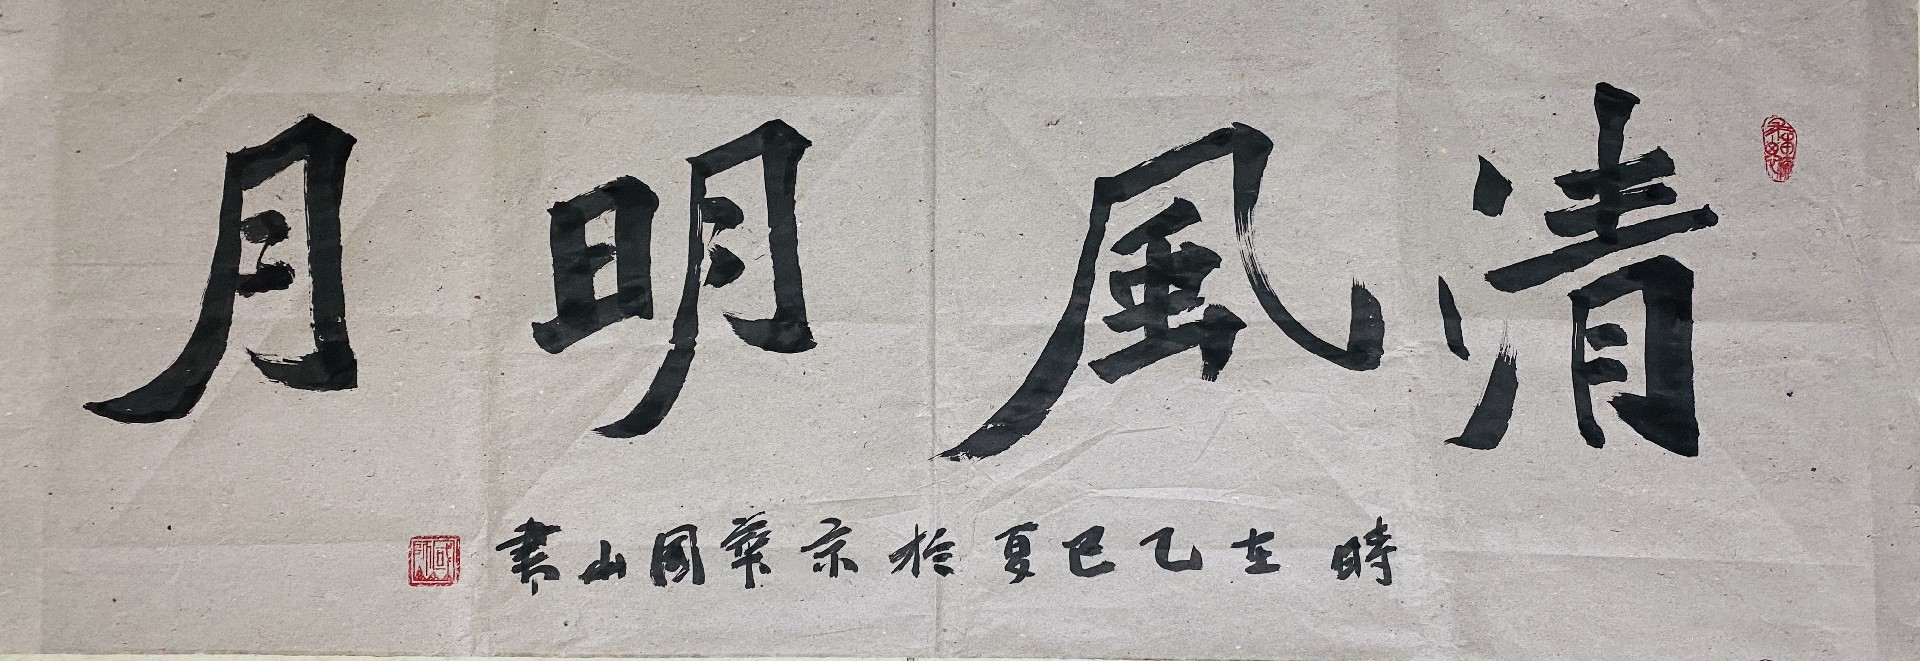 清風明月
時在乙巳夏於京華國山書